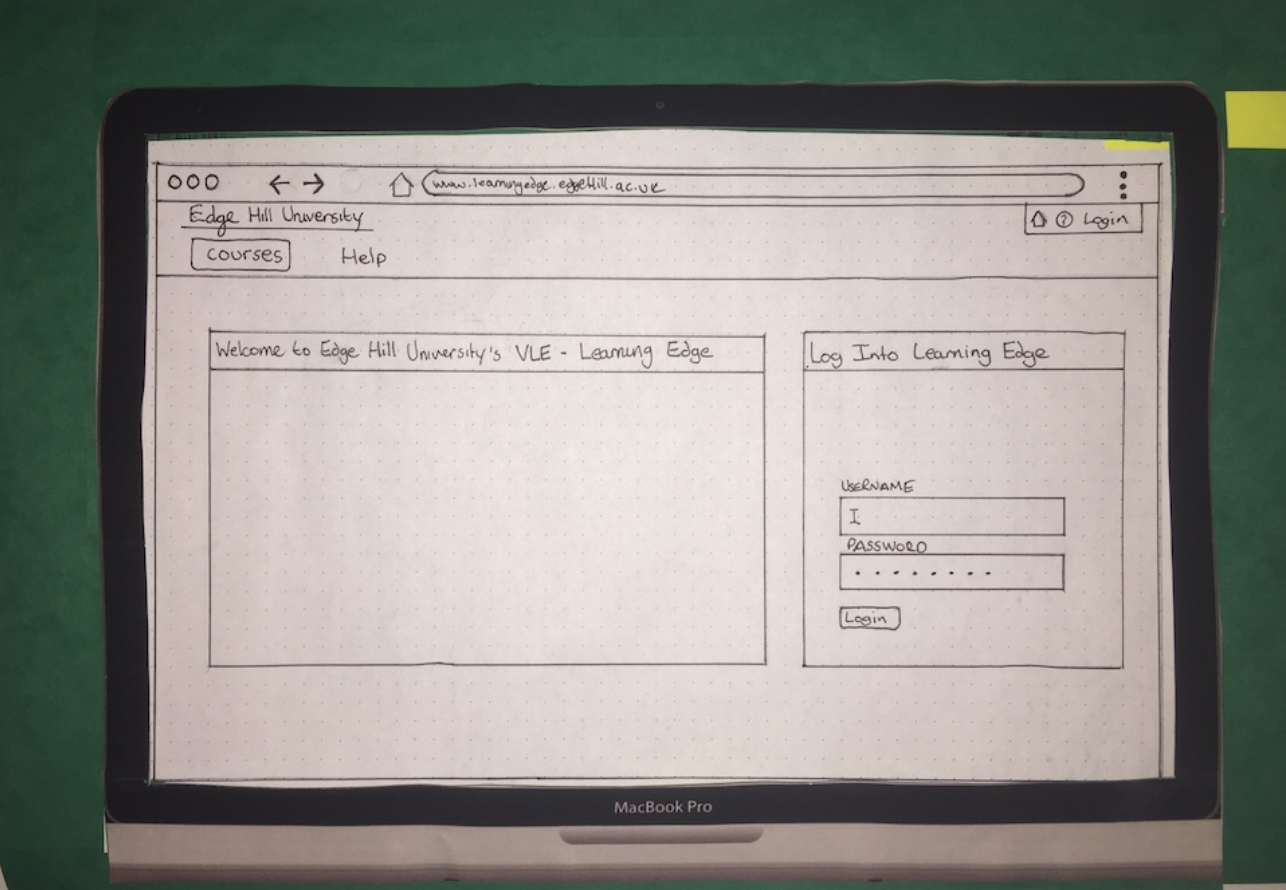 www.learningedge.edgeHill.ac.uk
Edge Hill University
? Login
courses Help
Welcome to Edge Hill University's VLE - Learning Edge
Log Into Learning Edge
USERNAME
I
PASSWORD
........
Login
MacBook Pro